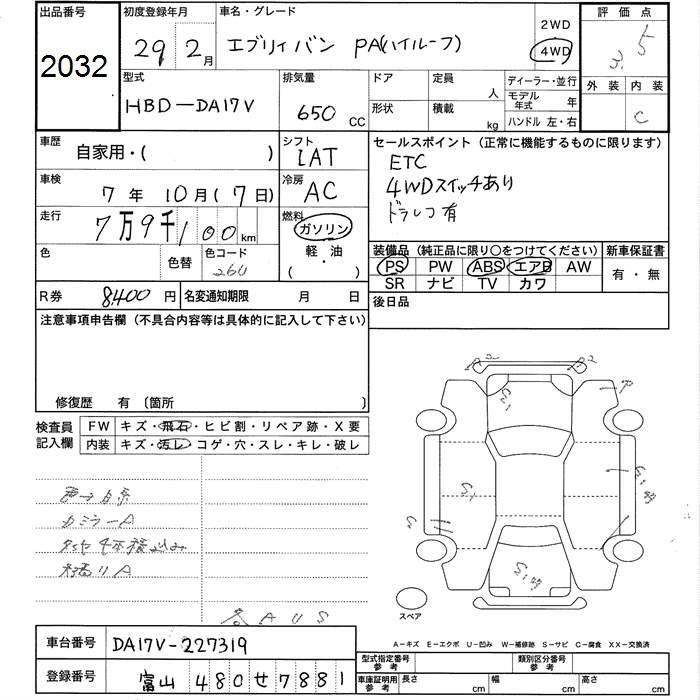 出品番号
2032
初度登録年月
29 2月
車名・グレード
エブリィバン PA(ハイルーフ)
2WD
4WD
評価点
3.5
型式
HBD-DA17V
排気量
650 CC
ドア
形状
定員 人
積載 kg
ディーラー・並行
モデル年式 年
ハンドル 左・右
外装 内装
C
車歴
自家用・( )
シフト
IAT
セールスポイント(正常に機能するものに限ります)
ETC
4WDスイッチあり
ドラレコ有
車検
7年10月(7日)
冷房
AC
走行
7万9千100km
燃料
ガソリン
軽・油
( ・ )
色
色替
色コード
26U
装備品(純正品に限り○をつけてください)
PS PW ABS エアB AW
SR ナビ TV カワ
新車保証書
有・無
R券 8400円
名変通知期限 月 日
後日品
注意事項申告欄(不具合内容等は具体的に記入して下さい)
修復歴 有 〔箇所 〕
検査員記入欄
FW キズ・飛石・ヒビ割・リペア跡・X要
内装 キズ・汚レ・コゲ・穴・スレ・キレ・破レ
スペア
A-キズ E-エクボ U-凹み W-補修跡 S-サビ C-腐食 XX-交換済
車台番号
DA17V-227319
登録番号
富山 480 せ 7881
型式指定番号 参考
類別区分番号 参考
車庫証明用 参考
長さ cm
幅 cm
高さ cm